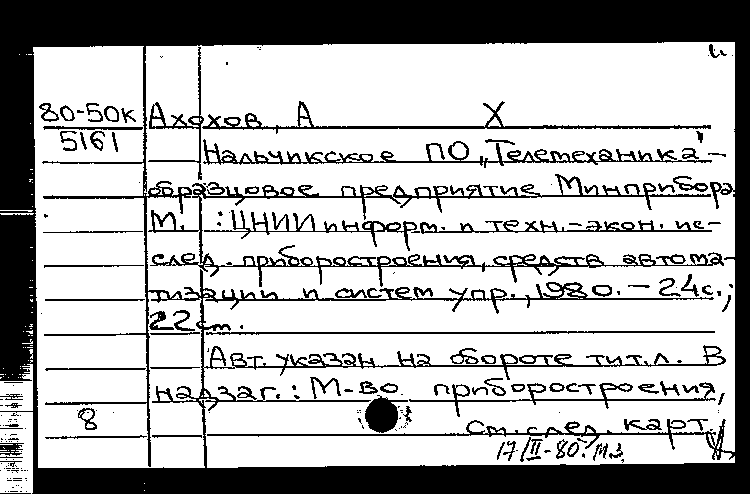 80-50к Ахохов, А X
5161
Нальчикское ПО „Телемеханика"-
образцовое предприятие Минприбора
М. : ЦНИИ информ. и техн.-экон. ис-
след. приборостроения, средств автома-
тизации и систем упр., 1980. - 24с.;
22 см.
Авт. указан на обороте тит. л. В
надзаг.: М-во приборостроения,
8 См. след. карт.
17/II-80.